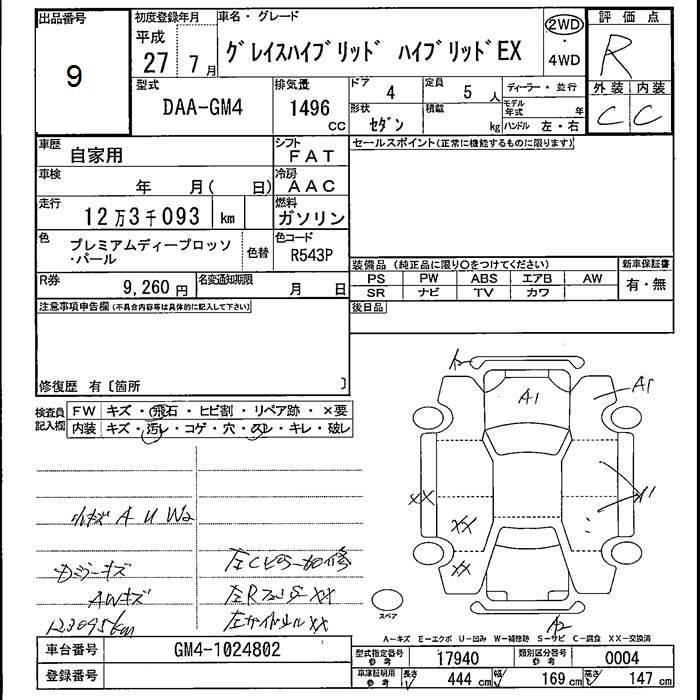 出品番号
9
初度登録年月
平成
27 7 月
車名・グレード
グレイスハイブリッド ハイブリッドEX
2WD
・
4WD
評価点
R
外装 内装
C C
型式
DAA-GM4
排気量
1496
CC
ドア
4
定員
5 人
形状
セダン
積載
kg
ディーラー・並行
モデル年式 年
ハンドル 左・右
車歴
自家用
シフト
FAT
車検
年 月( 日)
冷房
AAC
走行
12万3千093 km
燃料
ガソリン
色
プレミアムディープロッソ
・パール
色替
色コード
R543P
R券
9,260 円
名変通知期限
月 日
セールスポイント(正常に機能するものに限ります)
装備品 (純正品に限り○をつけてください)
PS PW ABS エアB AW
SR ナビ TV カワ
新車保証書
有・無
後日品
注意事項申告欄(不具合内容等は具体的に記入して下さい)
修復歴 有〔箇所 〕
検査員
記入欄
FW キズ・飛石・ヒビ割・リペア跡・×要
内装 キズ・汚レ・コゲ・穴・スレ・キレ・破レ
小キズ A U W2
AWキズ
123095km
左Cピラー
左R XX
左サイドシル XX
A1
A1
XX
XX
XX
A2
スペア
A-キズ E-エクボ U-凹み W-補修跡 S-サビ C-腐食 XX-交換済
車台番号 GM4-1024802
登録番号
型式指定番号
参考
17940
類別区分番号
参考
0004
車庫証明用
参考
長さ 444 cm 幅 169 cm 高さ 147 cm